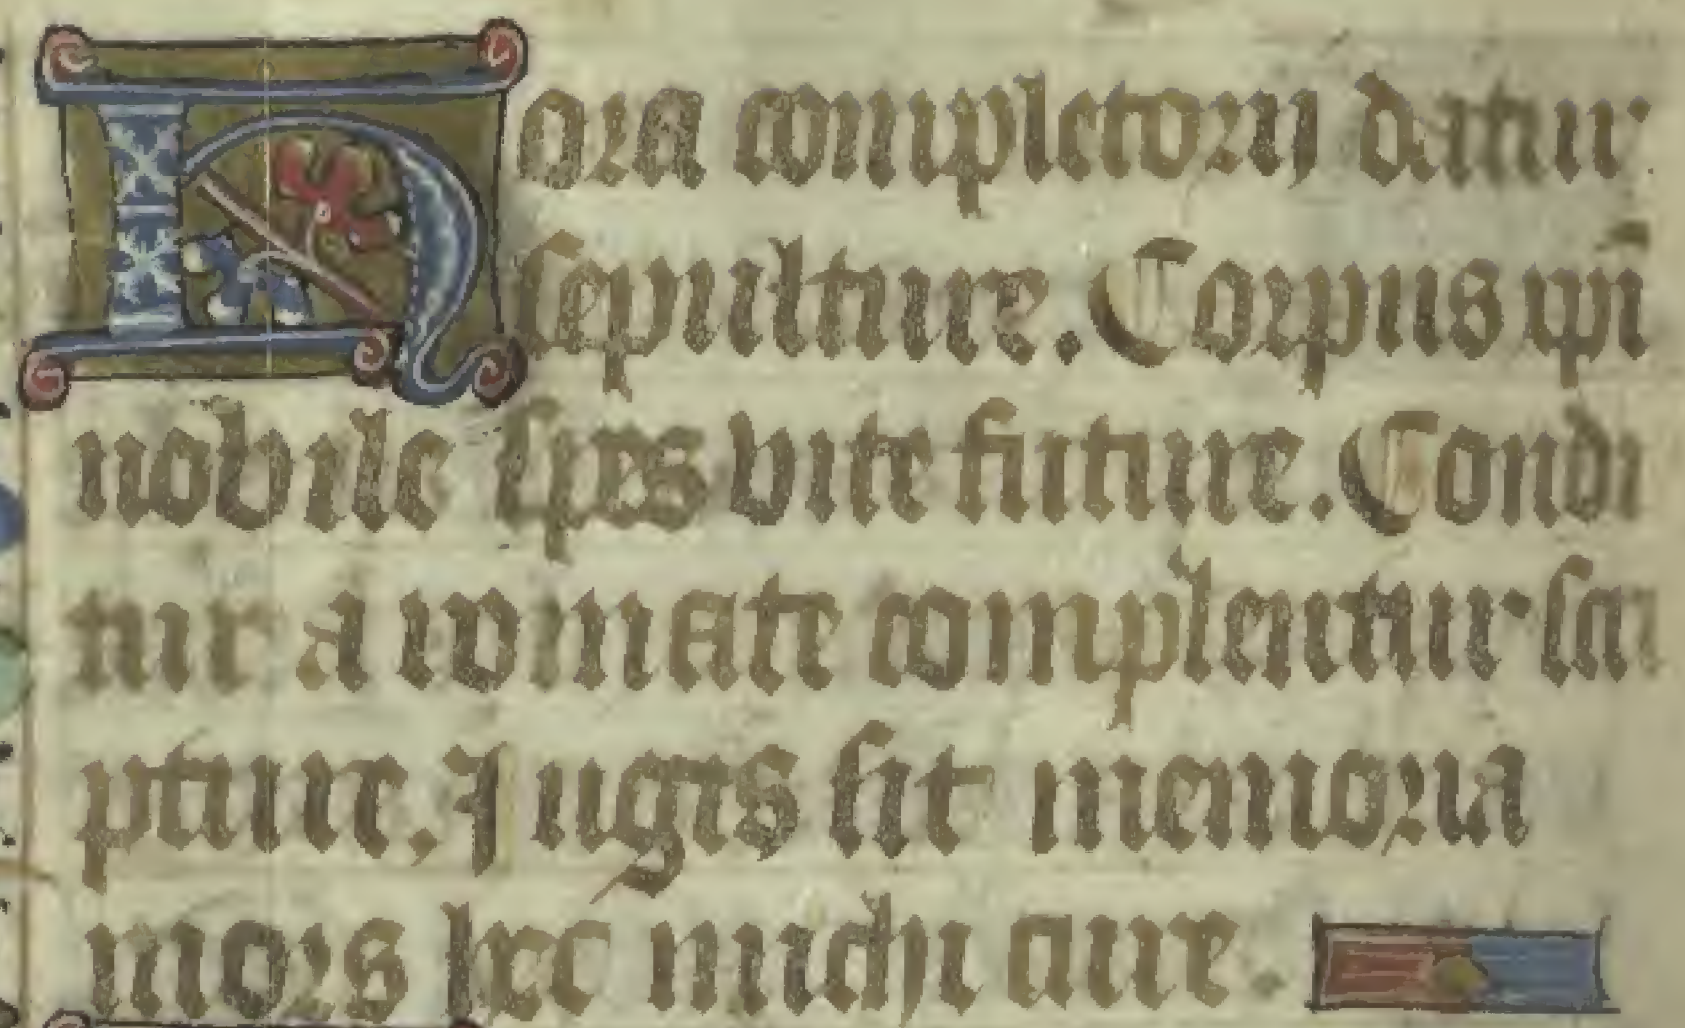 Hora completorij datur
sepulture. Corpus xpi
nobile spes vite future. Condi
tur a romate complentur scri
pture. Jugis sit memoria
mors hec michi cure.